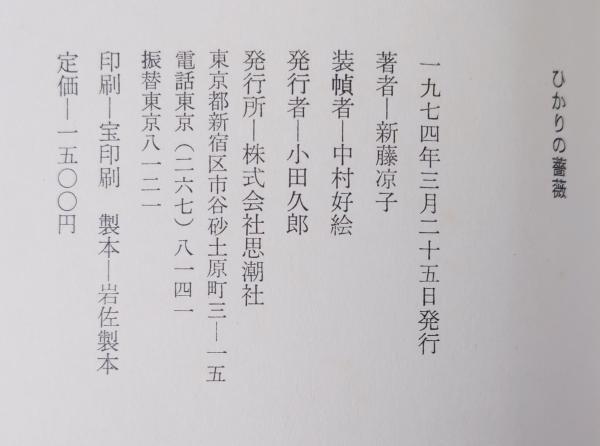 ひかりの薔薇
一九七四年三月二十五日発行
著者―新藤凉子
装幀者―中村好絵
発行者―小田久郎
発行所―株式会社思潮社
東京都新宿区市谷砂土原町三―一五
電話東京(二六七)八一四一
振替東京八一二一
印刷―宝印刷　製本―岩佐製本
定価―一五〇〇円